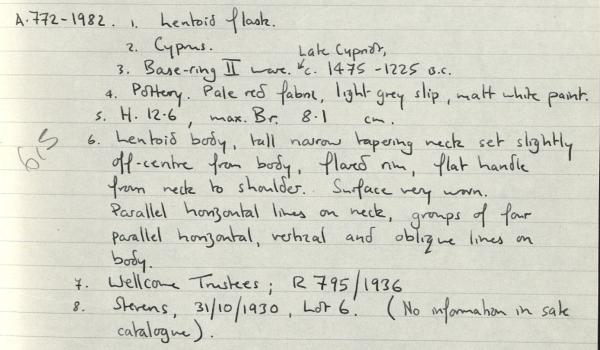 A.772-1982. 1. Lentoid flask.
2. Cyprus.
Late Cypriot,
3. Base-ring II ware. c. 1475-1225 B.C.
4. Pottery. Pale red fabric, light grey slip, matt white paint.
5. H. 12.6, max. Br. 8.1 cm.
6. Lentoid body, tall narrow tapering neck set slightly
off-centre from body, flared rim, flat handle
from neck to shoulder. Surface very worn.
Parallel horizontal lines on neck, groups of four
parallel horizontal, vertical and oblique lines on
body.
7. Wellcome Trustees; R 795/1936
8. Stevens, 31/10/1930, Lot 6. (No information in sale
catalogue).